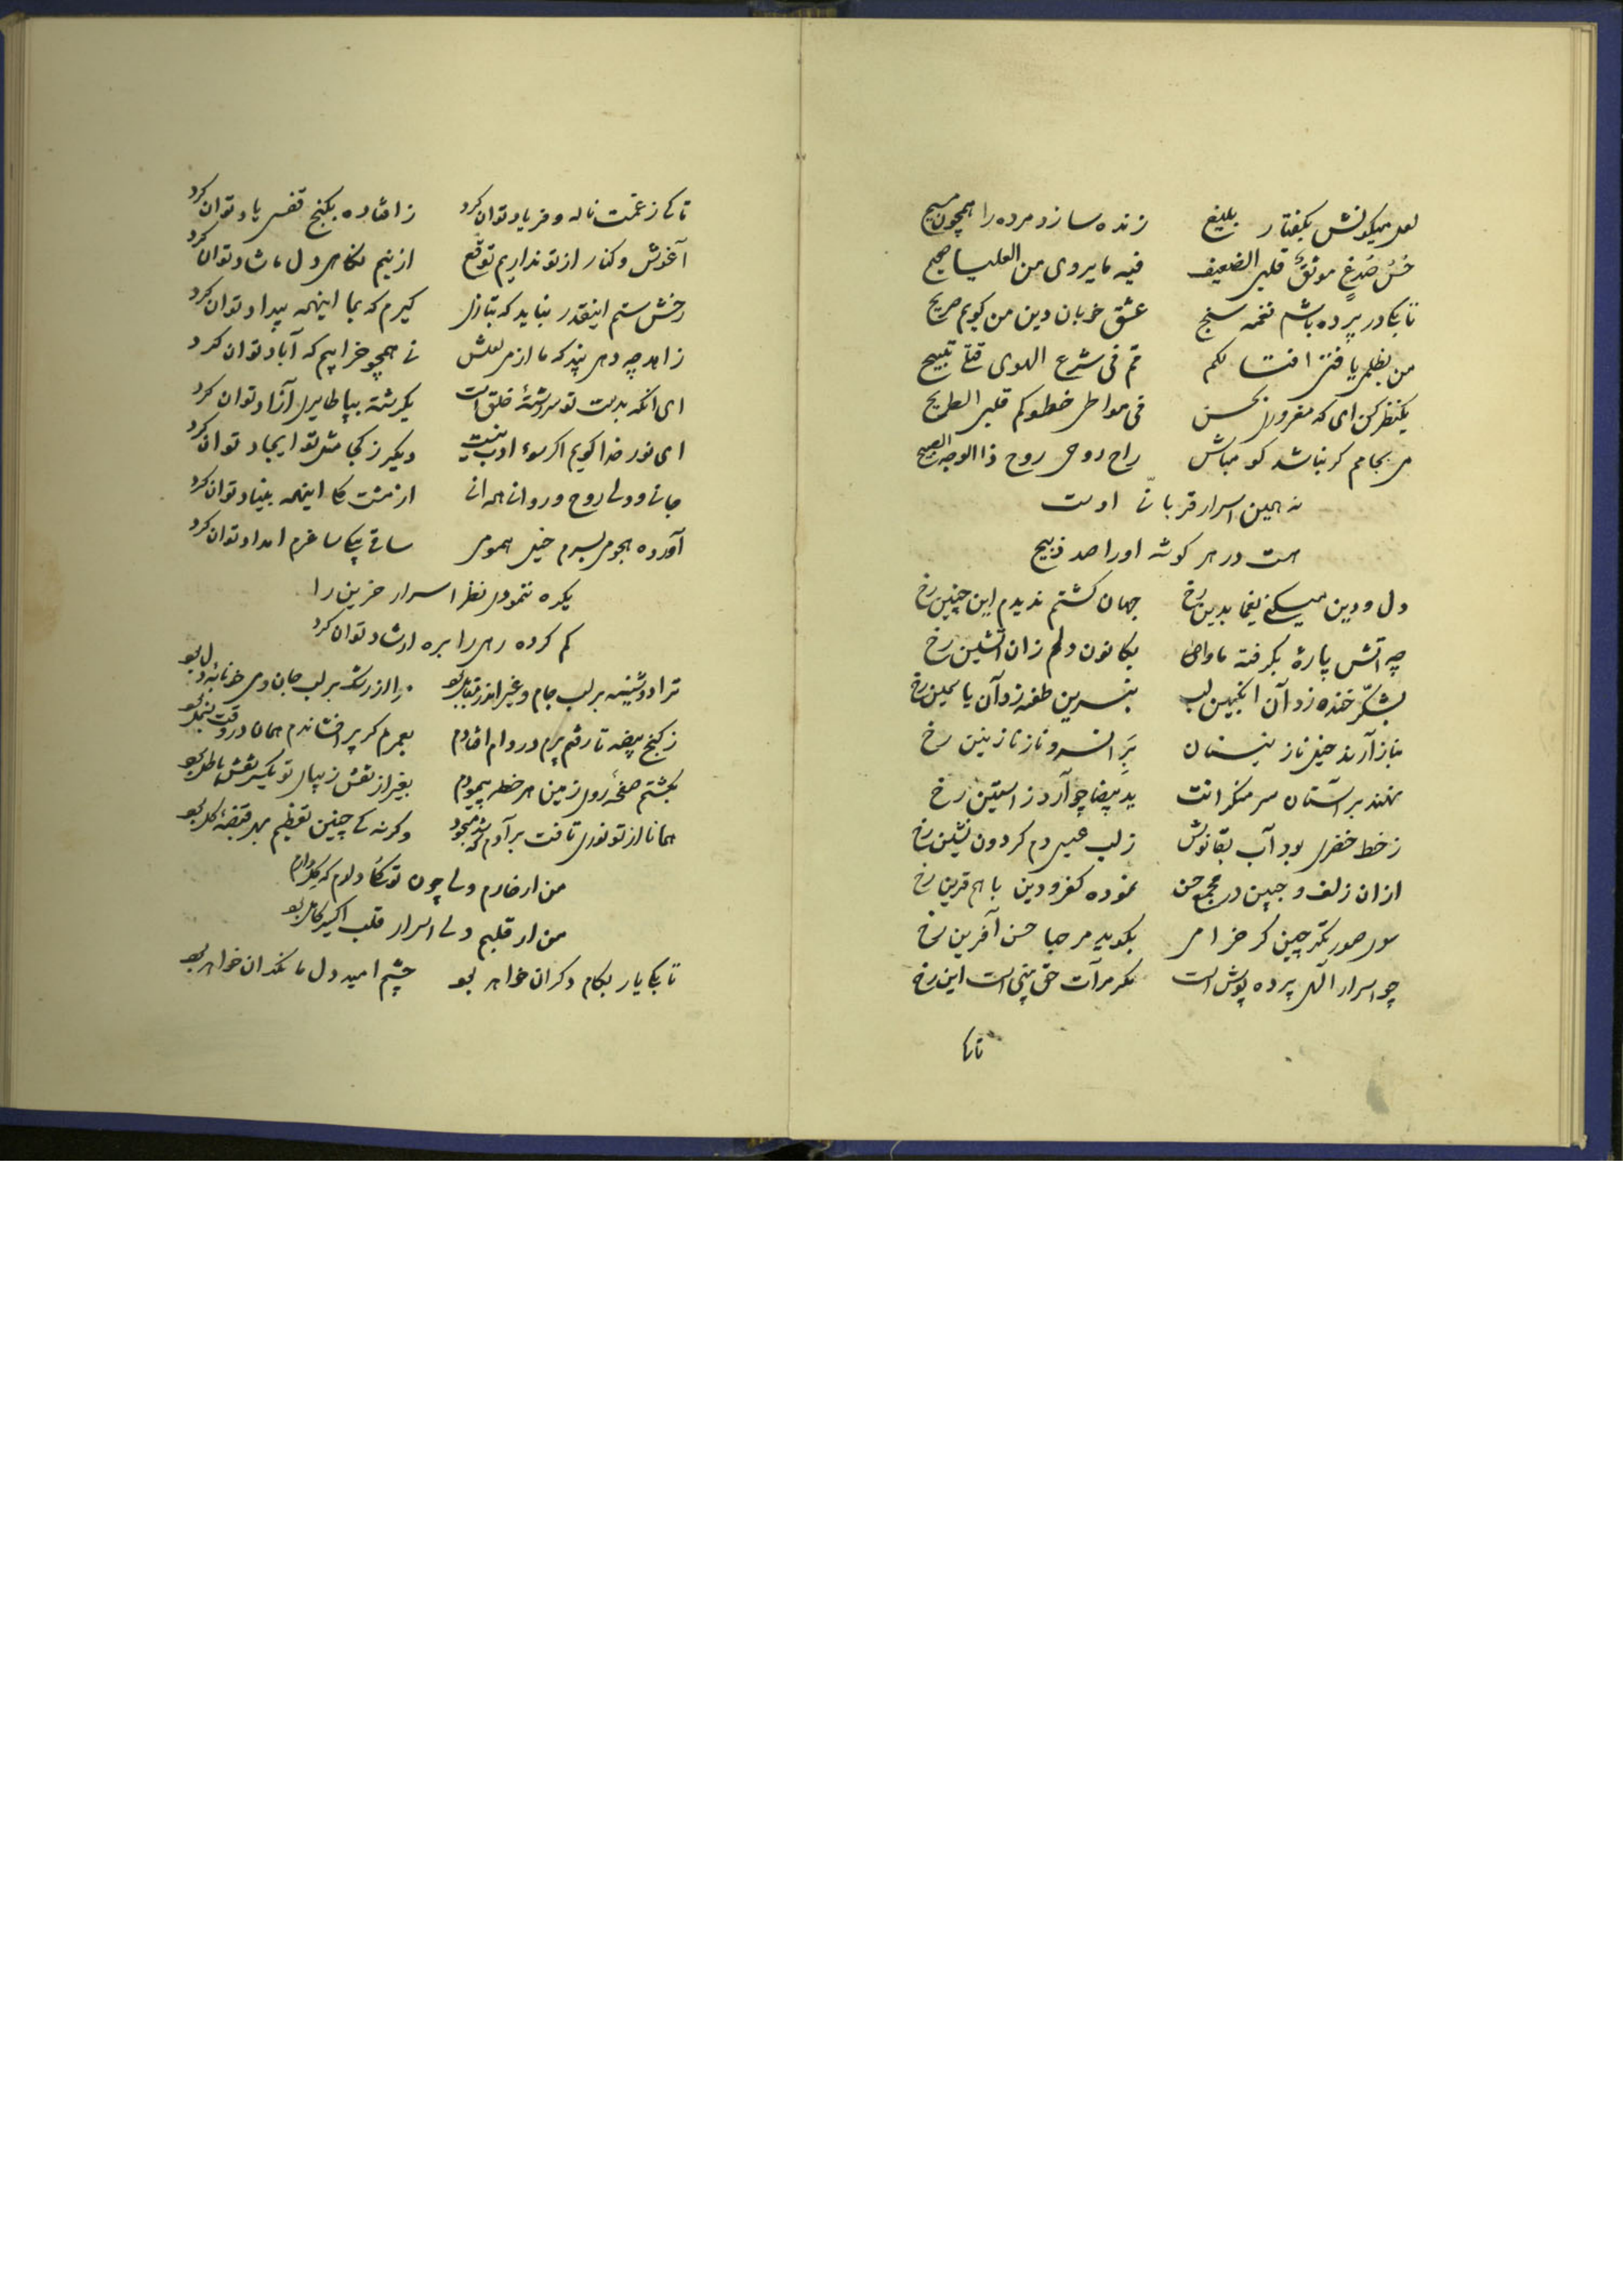 لعل میکونش بکفتار بلیغ زنده سازد مرده را همچون مسیح
حُسْنُ صُدْغٍ موثقٌ قلبی الضعیف فیه ما یروی من العلیا صحیح
تا بکی در پرده باشم نغمه سنج عشق خوبان دین من کویم صریح
من بظلمی یا فتی افتا لکم قم فی شرع الهوی قتلی تبیح
یکنظر کن ای که مغروری بحسن فی مواطی خطوکم قلبی الطریح
می بجامم کر نباشد کو مباش راح روحی روح ذا الوجه الصبیح
نه همین اسرار قربانّی اوست
هست در هر کوشه او را صد ذبیح
دل و دین میکنی یغما بدین رخ جهان کشتم ندیدم این چنین رخ
چه اتش پارهٔ بکرفته ماوای بکانون دلم زان اتشین رخ
بشکّر خنده زد آن انکبین لب بنسرین طعنه زد آن یاسمین رخ
بناز آرند خیل نازنینان بَرِ انسرو ناز نازنین رخ
نهند بر آستان سر منکرانت ید بیضا چو آرد ز استین رخ
ز خط خضری بود آب بقا نوش ز لب عیسی دم کردون نشین رخ
از ان زلف و جبین در مجمع حسن نموده کفر و دین با هم قرین رخ
سوی صورتکر چین کر خرامی بکوید مرحبا حسن آفرین رخ
چو اسرار آلهی پرده پوش است مکر مرآت حق بینی است این رخ
تا کی
تا کی ز غمت ناله و فریاد توان کرد ز افتاده بکنج قفسی یاد توان کرد
آغوش و کنار از تو نداریم توقّع از نیم نکاهی دل ما شاد توان کرد
رخش ستم اینقدر نباید که بتازی کیرم که بما اینهمه بیداد توان کرد
زاهد چه دهی پند که ما از می لعلش نی همچو خرابیم که آباد توان کرد
ای انکه بدست تو سر رشتهٔ خلق است یکرشته بپا طایری آزاد توان کرد
ای نور خدا کویم اکر سوء ادب نیست دیکر ز کجا مثل تو ایجاد توان کرد
جانی و دلی روح و روانی همه انی از مشت کل اینهمه بنیاد توان کرد
آورده هجومی بسرم خیل همومی ساقی بیکی ساغرم امداد توان کرد
یکره ننمودی نظر اسرار حزین را
کم کرده رهی را بره ارشاد توان کرد
ترا دوشینه بر لب جام و غیر اندر مقابل بو مرا از رشک بر لب جان و می خونابهٔ دل بو
ز کنج بیضه تا رفتم پرم در دام افتادم بعمرم کر پر افشاندم همان در وقت بسمل بو
بکشتم صفحهٔ روی زمین هر خطه پیمودم بغیر از نقش زیبای تو یکسر نقش باطل بو
همانا از تو نوری تافت بر آدم که شد مسجود وکرنه کی چنین تعظیم بهر قبضهٔ کل بو
من ار خارم ولی چون تو کل دارم
من ار قلبم ولی اسرار قلب اکسیر کامل بو
تا بکی یار بکام دکران خواهد بو چشم امید دل ما نکران خواهد بو